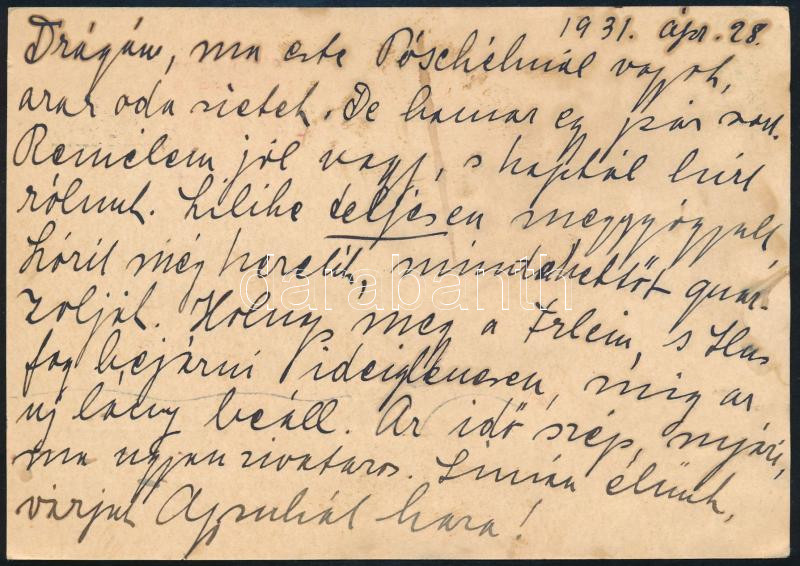 1931. ápr. 28.
Drágám, ma este Póschélnál vagyok,
azaz oda sietek. De hamar egy pár sort.
Remélem jól vagy, s kaptál hírt
rólunk. Lilike teljesen meggyógyult,
Lórit még kezelik, mindkettőt quar-
zolják. Holnap meg a Frlein, s Ilus
fog bejárni ideiglenesen, míg az
uj lány beáll. Az idő szép, nyári,
ma ugyan zivataros. Simán élünk,
várjuk Apukát haza!
darabanth